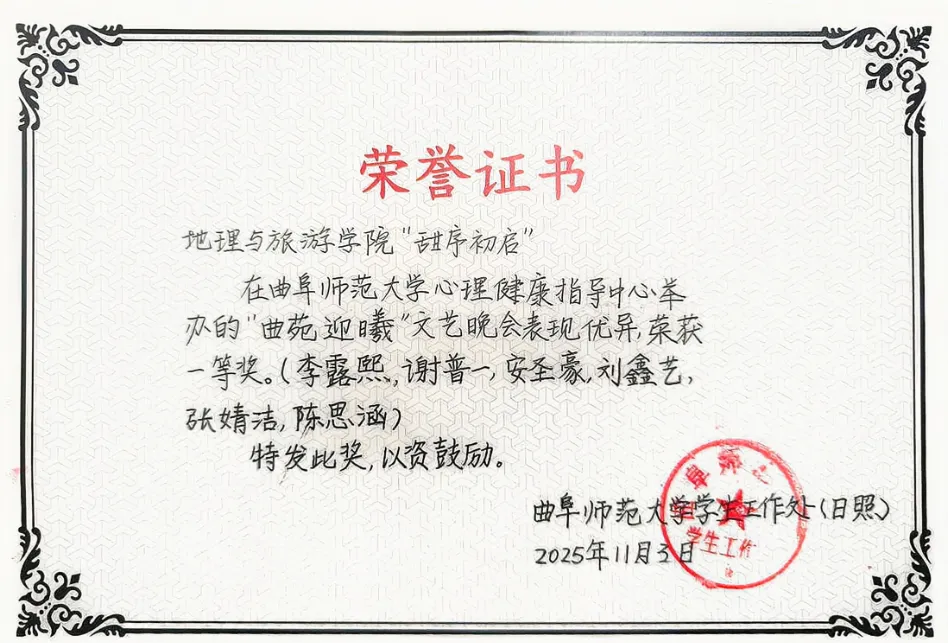 荣誉证书
地理与旅游学院“甜序初启”
在曲阜师范大学心理健康指导中心举
办的“曲苑迎曦”文艺晚会表现优异,荣获
一等奖。(李露熙,谢普一,安圣豪,刘鑫艺,
张婧洁,陈思涵)
特发此奖,以资鼓励。
曲阜师范大学学生工作处(日照)
2025年11月3日
阜师
学生工作